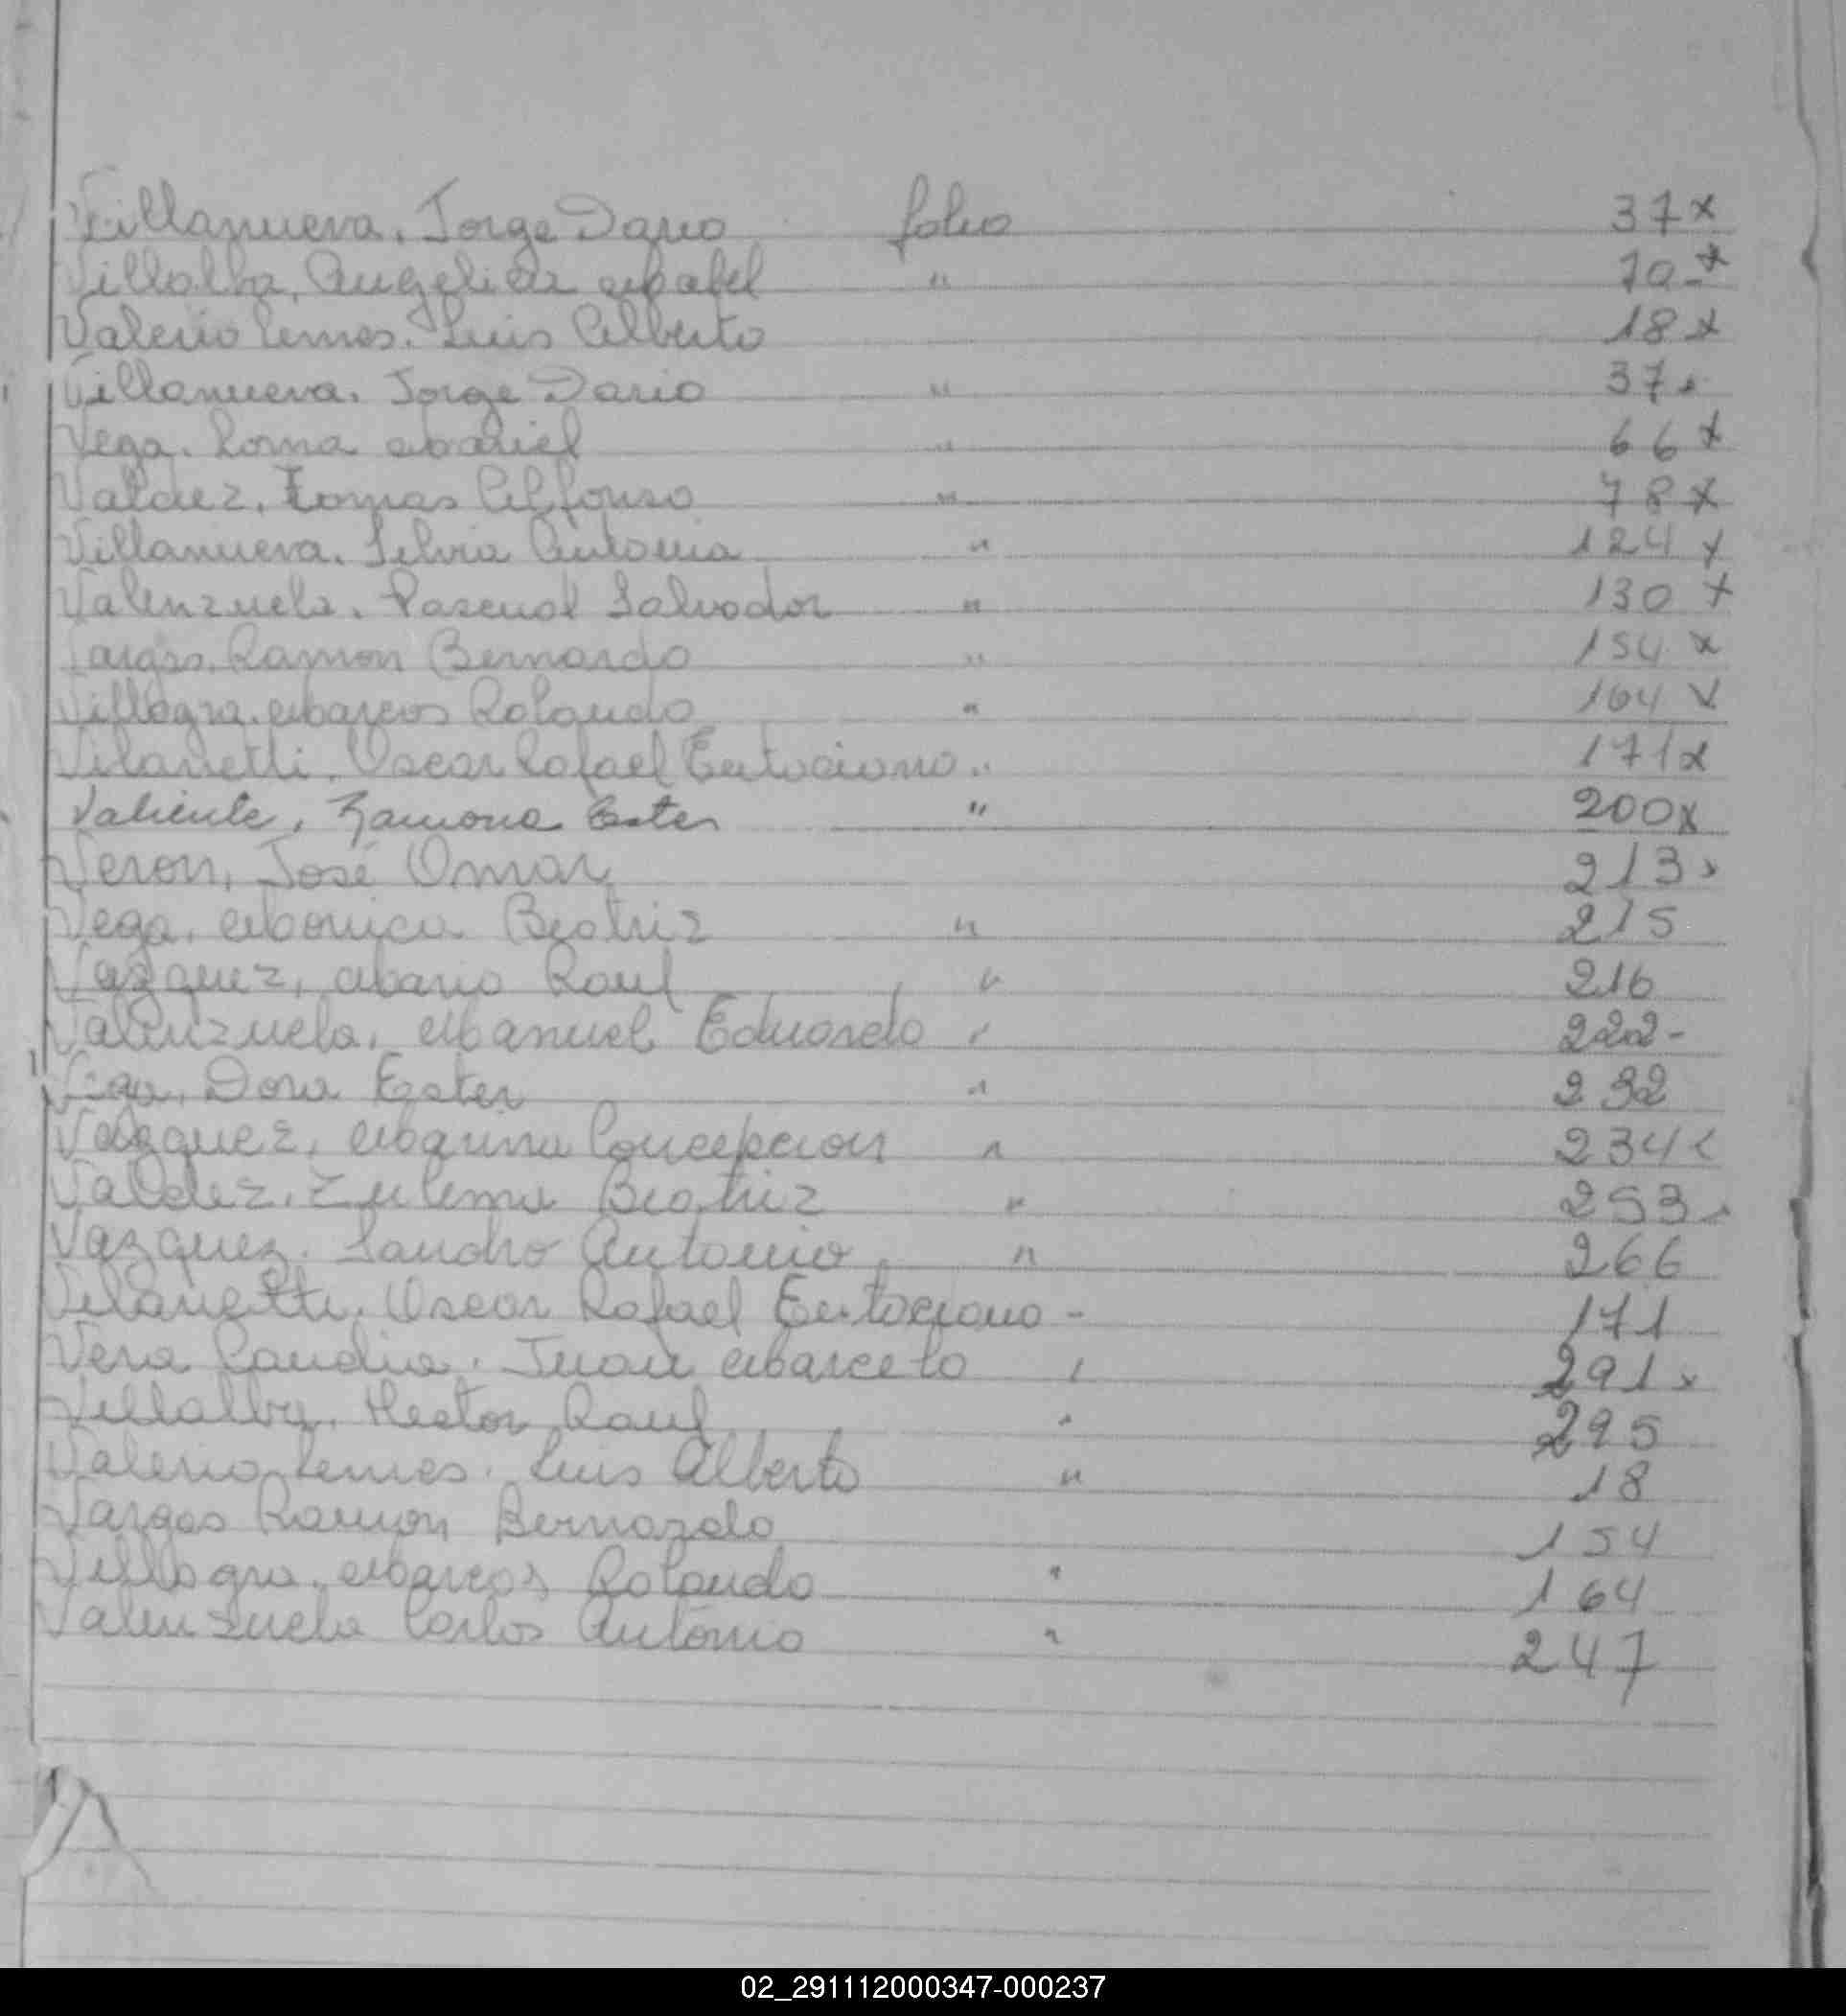 Villanueva, Jorge Dario folio 37 x
Villalba, Angelica Mabel " 70 x
Valerio Lemes, Luis Alberto 18 x
Villanueva, Jorge Dario " 37 x
Vega, Lorna Mariel " 66 x
Valdez, Tomas Alfonso " 78 x
Villanueva, Silvia Antonia " 124 x
Valenzuela, Pascual Salvador " 130 x
Vargas, Ramon Bernardo " 154 x
Villagra, Marcos Rolando " 164 x
Vilanetti, Oscar Rafael " 171 x
Valiente, Ramona Ester " 200 x
Veron, José Omar 213 x
Vega, Monica Beatriz " 215
Vazquez, Mario Raul " 216
Valenzuela, Manuel Eduardo " 222 -
Vega, Dora Ester " 232
Vazquez, Marina Concepcion " 234 x
Valdez, Zulema Beatriz " 253
Vazquez, Sandro Antonio " 266
Vilanetti, Oscar Rafael - 171
Vera Candia, Juan Marcelo " 291 x
Villalba, Hector Raul " 295
Valerio Lemes, Luis Alberto " 18
Vargas Ramon Bernardo 154
Villagra, Marcos Rolando " 164
Valenzuela Carlos Antonio " 247
02_291112000347-000237